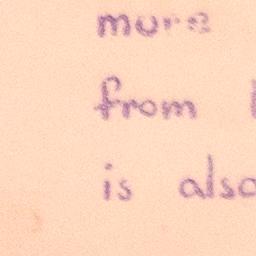 more
from
is also